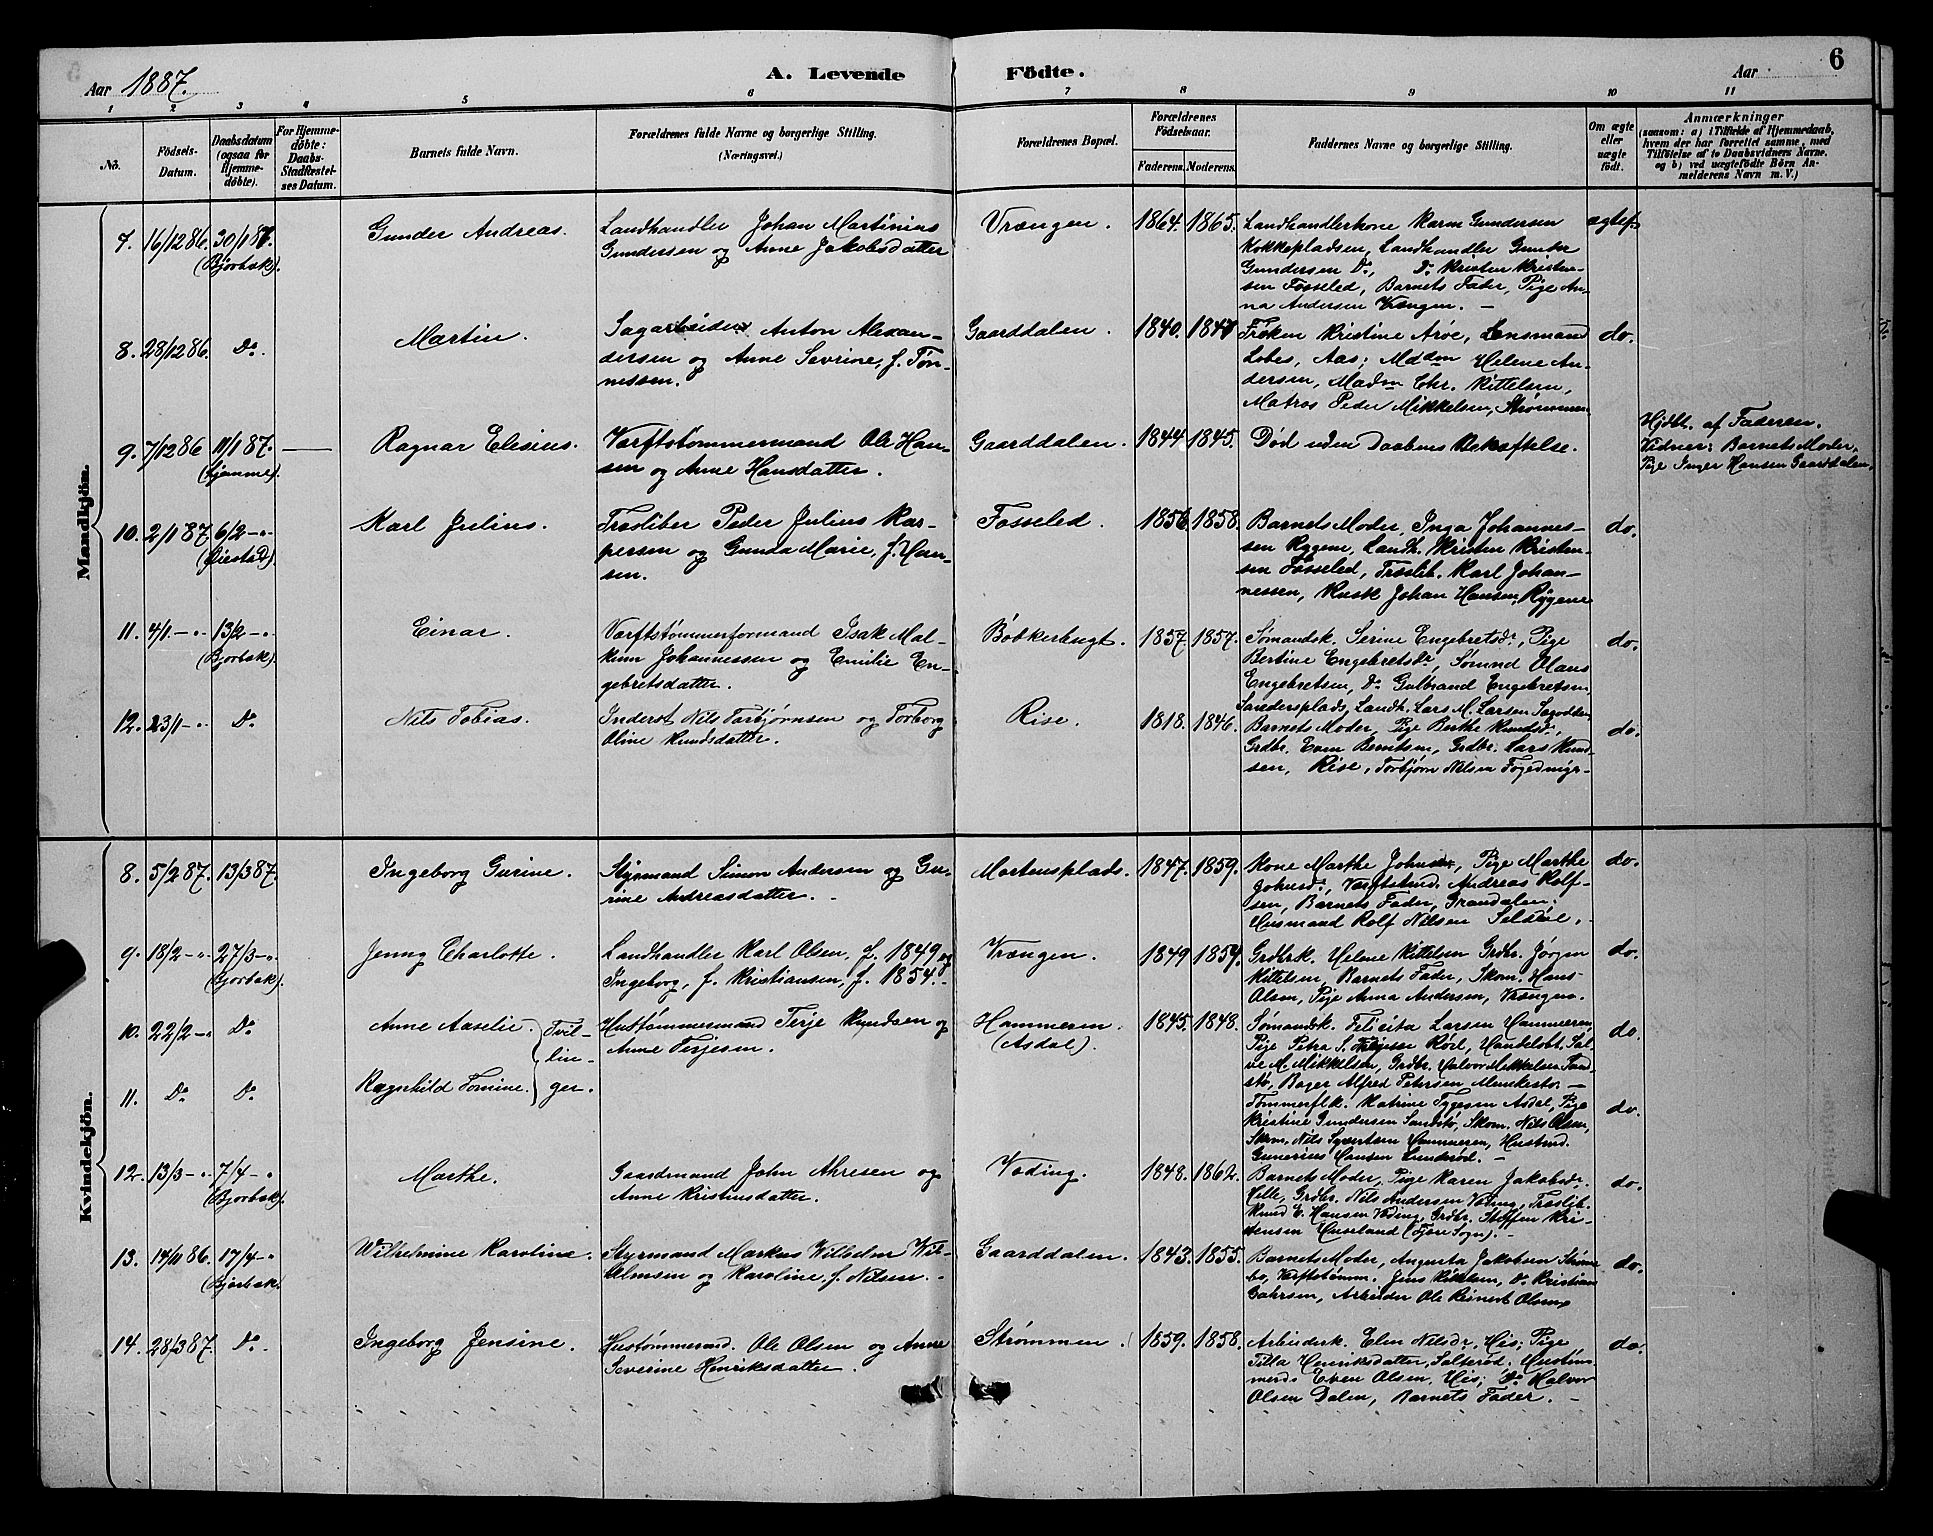 Aar 1887.
A. Levende Födte.
Aar
6
1 2 3 4 5 6 7 8 9 10 11
No.
Födsels-Datum.
Daabsdatum (ogsaa for Hjemme-døbte).
For Hjemme-döbte: Daabs-Stadfæstel-ses Datum.
Barnets fulde Navn.
Forældrenes fulde Navne og borgerlige Stilling. (Næringsvei.)
Forældrenes Bopæl.
Forældrenes Födselsaar.
Faderens. Moderens.
Faddernes Navne og borgerlige Stilling.
Om ægte eller uægte født.
Anmærkninger
(saasom: a) i Tilfælde af Hjemmedaab, hvem der har forrettet samme, med Tilföielse af to Daabsvidners Navne, og b) ved uægtefödte Börn Anmelderens Navn m. V.)
Mandkjön.
7. 16/12 86. 30/1 87. (Bjorbæk).
Gunder Andreas.
Landhandler Johan Martinius
Gundersen og Anne Jakobsdatter
Vrængen. 1864. 1865.
Landhandlerkone Karen Gundersen
Kokkepladsen, Landhandler Gunder
Gundersen Do, Do Kristen Kristen-
sen Fosseled, Barnets Fader, Pige An-
na Andersen Vrængen. —
ægtef.
8. 28/12 86. Do.
Martin.
Sagarbeider Anton Alexan-
dersen og Anne Sevrine, f. Tøn-
nissen.
Gaarddalen. 1840. 1847
Frøken Kristine Arøe, Lensmand
Aas; Madm Helene An-
dersen, Madm Chr. Kittelsen,
Matros Peder Mikkelsen, Strømmen
do.
9. 7/12 86 11/1 87. (hjemme). —
Ragnar Elisius.
Værftstømmermand Ole Han-
sen og Anne Hansdatter.
Gaarddalen. 1844 1845.
Død uden Daabens Bekræftelse.
Hjdbt. af Faderen.
Vidner: Barnets Moder,
Pige Inger Hansen Gaarddalen.
10. 2/1 87 6/2 -"- (Øiestad).
Karl Julius.
Træsliber Peder Julius Kas-
persen og Gunda Marie, f. Han-
sen.
Fosseled. 1856 1858.
Barnets Moder, Inga Johannes-
sen Rygene, Landh. Kristen Kristen-
sen Fosseled, Træslib. Karl Johan-
nessen, Kusk Johan Hansen, Rygene
do.
11. 4/1 -"- 13/2 -"- (Bjorbæk).
Einar.
Værftstømmerformand Isak Mal-
kum Johannessen og Emilie En-
gebretsdatter.
Bøbkerbugt. 1857. 1857.
Sømandsk. Serine Engebretsdr, Pige
Bertine Engebretsdr, Sømnd Olaus
Engebretsen, Do Gulbrand Engebretsen
Sandersplads, Landh. Lars M. Larsen
do.
12. 23/1 -"- Do
Nils Tobias.
Inderst Nils Torbjørnsen og Torborg
Oline Knudsdatter.
Rise. 1818. 1846.
Barnets Moder, Pige Berthe Knudsdr.,
Grdbr. Even Berntsen, Grdbr. Lars Knud-
sen, Rise, Torbjørn Nilsen
do.
Kvindekjön.
8. 5/2 87. 13/3 87.
Ingeborg Gurine.
Styrmand Simon Andersen og Gu-
rine Andreasdatter. -
Mortensplads. 1847. 1859.
Kone Marthe Johnsdr, Pige Marthe
Johnsdr, Andreas Rolf-
sen, Barnets Fader, Grandalen.
Husmand Rolf Nilsen
do.
9. 18/2 -"- 27/3 -"- (Bjorbæk).
Jenny Charlotte.
Landhandler Karl Olsen, f. 1849 og
Ingeborg, f. Kristiansen, f. 1854. -
Vrængen. 1849 1854.
Grdbrk. Helene Kittelsen Grdbr. Jørgen
Kittelsen, Barnets Fader, Skom. Hans
Olsen, Pige Anna Andersen, Vrængen.
do.
10. 22/2 -"- Do
Anne Aaselie. Tvil-
lin-
ger.
Hustømmermand Terje Knudsen og
Anne Terjesen.
Hammeren. (Asdal). 1845. 1848.
Sømandsk. Felicita Larsen Hammeren,
Pige Petra S. Røil, Handelsbt. Sal-
ve M. Mikkelsen, Grdbr. Halvor Mikkelsen Sand-
stø, Bager Alfred Petersen —
do
11. Do Do
Ragnhild Tomine.
Tømmerflk. Katrine Tygesen Asdal, Pige
Kristine Gundersen Sandstø, Skom. Nils Olsen,
Skom. Nils Syvertsen Hammeren, Hustmd.
Gunerius Hansen Lunderød. -
do.
12. 13/3 -"- 7/4 -"- (Bjorbæk).
Marthe.
Gaardmand John Ahresen og
Anne Kristensdatter.
Væding. 1848. 1862.
Barnets Moder, Pige Karen Jakobsdr.
Hille, Grdbr. Nils Andersen Væding, Træslib.
Knud E. Hansen Væding, Grdbr. Steffen Kri-
stensen Huseland (Fjære Sogn). -
do.
13. 14/11 86. 17/4 -"- (Bjorbæk).
Wilhelmine Karoline.
Styrmand Markus Vilhelm Wil-
helmsen og Karoline, f. Nilsen. -
Gaarddalen. 1843. 1855.
Barnets Moder, Augusta Jakobsen Strøms-
bo, Værftstømm. Jens Kittelsen, Do Kristian
Arbeider Ole Reinert Olsen
do.
14. 28/3 87. Do.
Ingeborg Jensine.
Hustømmermd. Ole Olsen og Anne
Severine Henriksdatter.
Strømmen. 1859. 1858.
Arbeiderk. Elen Nilsdr, His; Pige
Tilla Henriksdatter, Salterød. Hustøm-
mermd. Even Olsen, His; Do Halvor
Olsen Dalen, Barnets Fader. -
do.